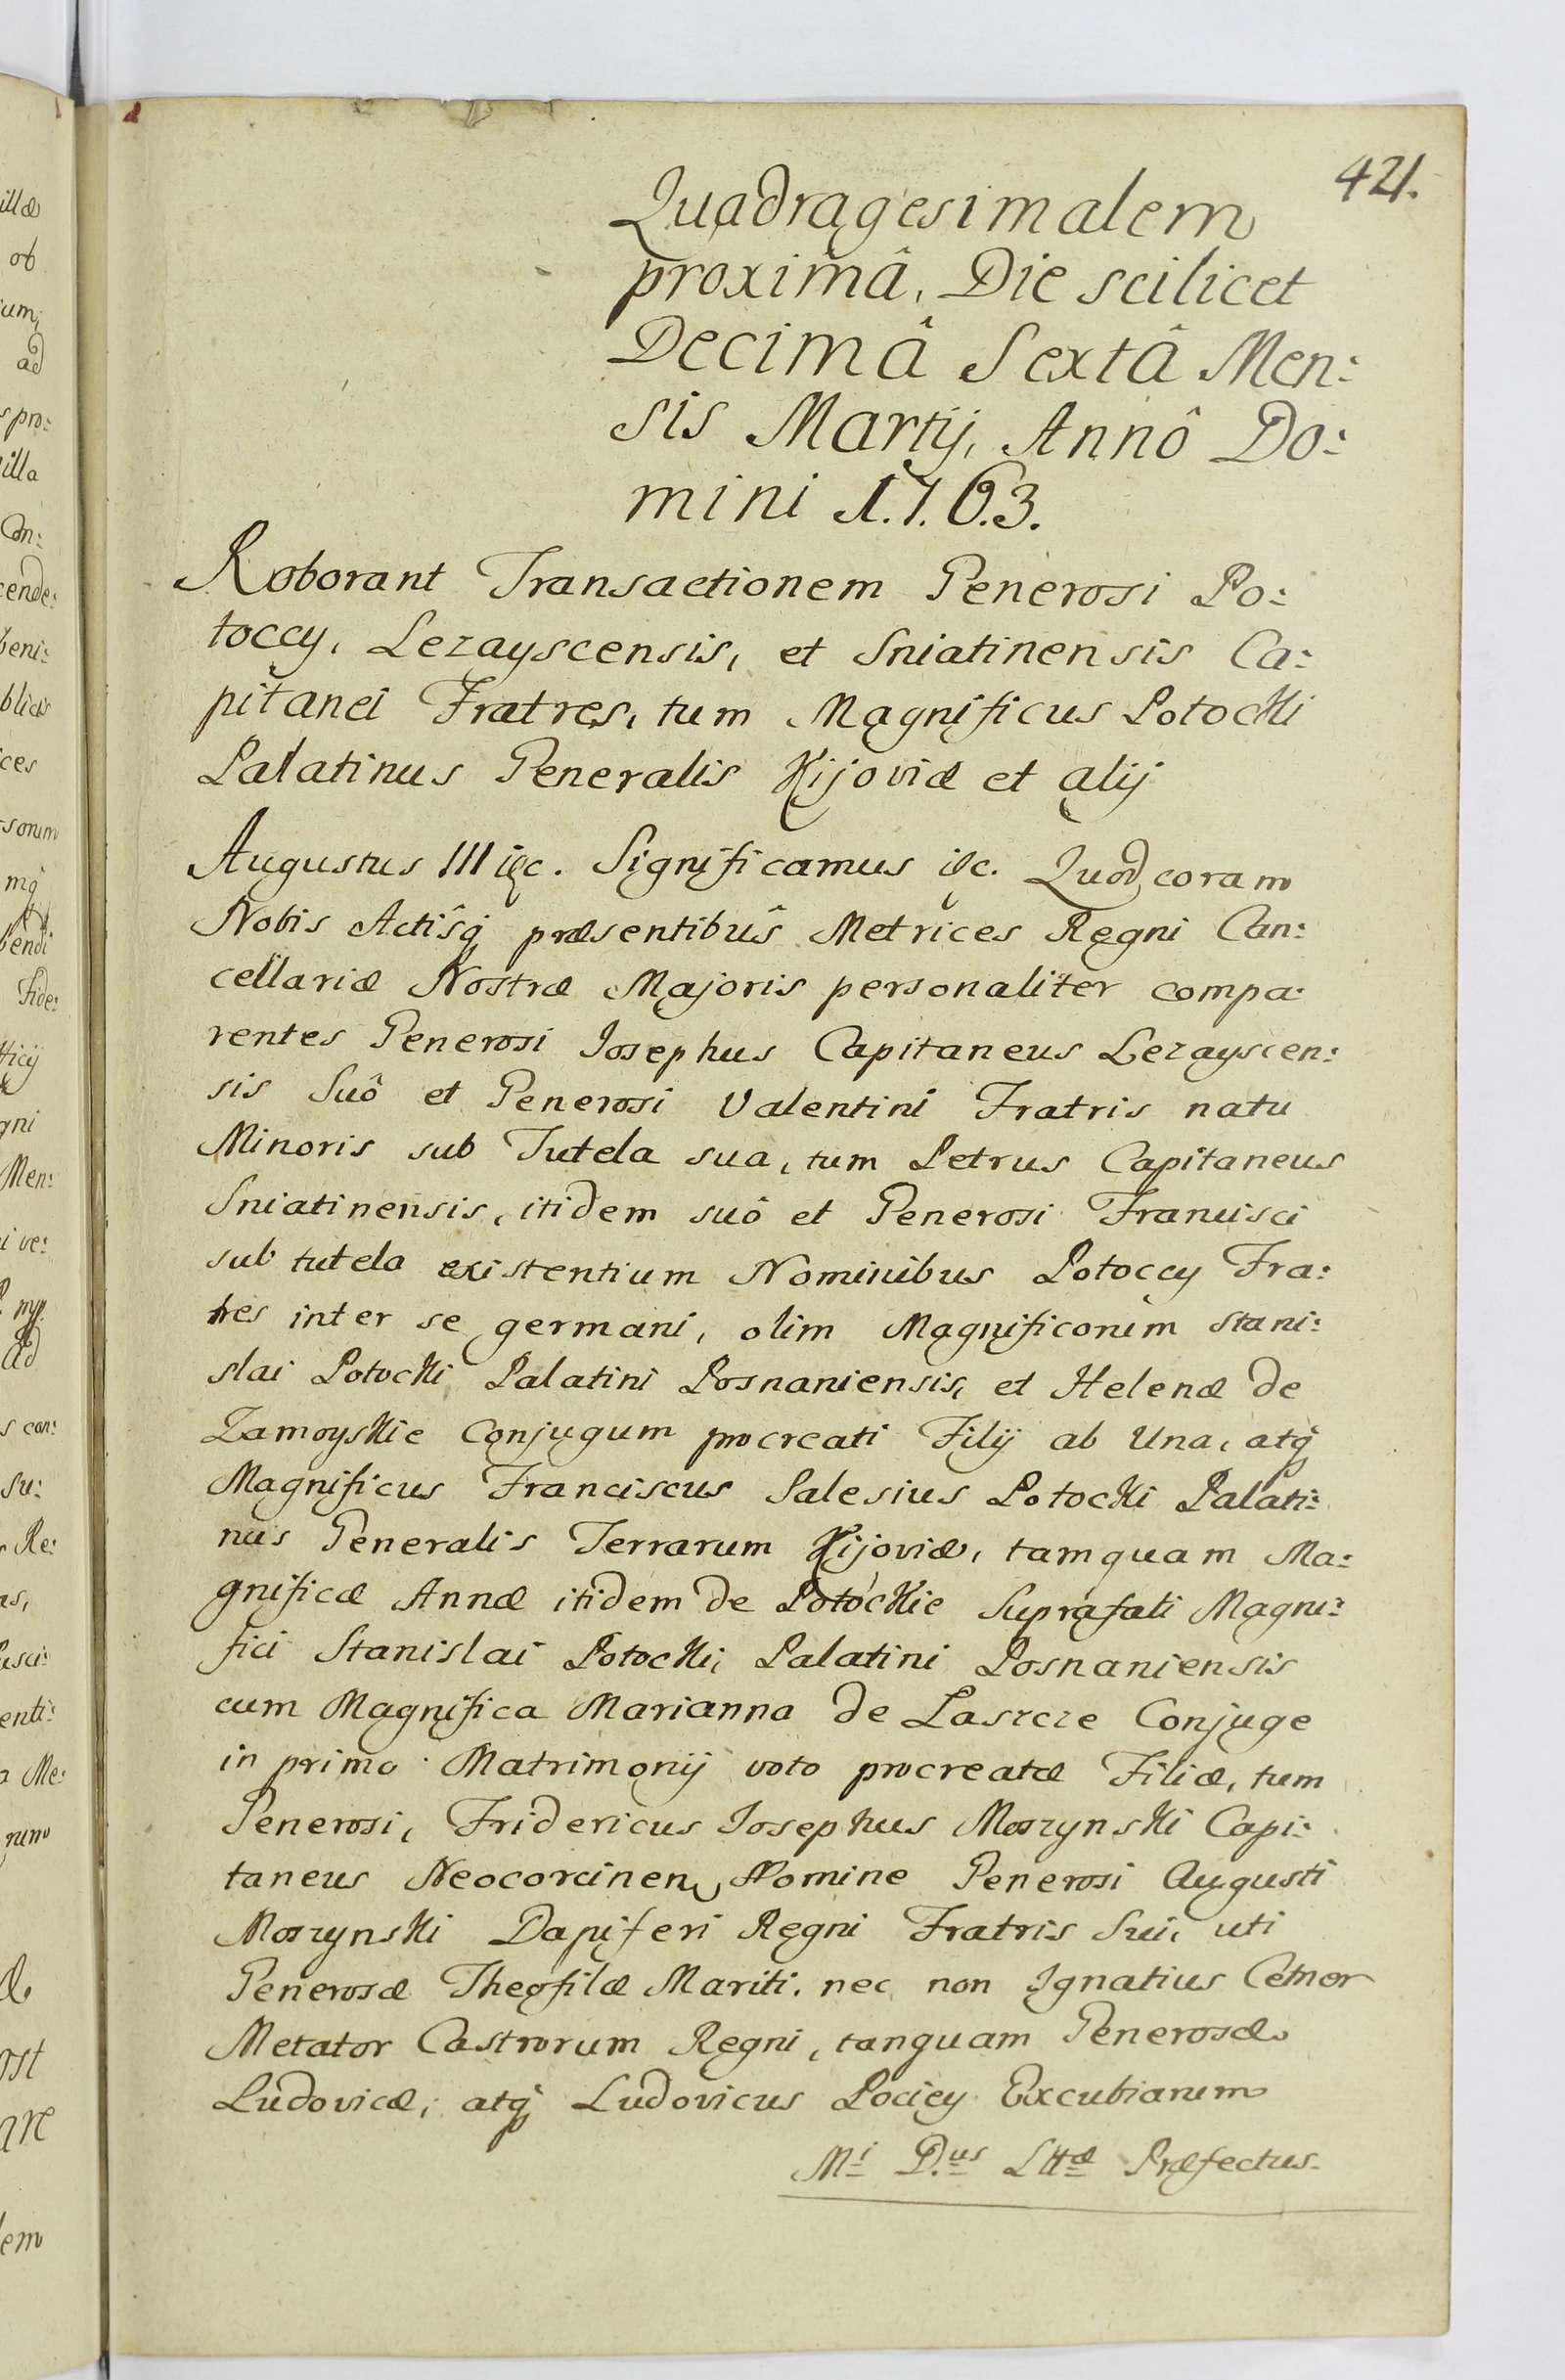 421.
Quadragesimalem
proximâ, Die scilicet
Decimâ Sextâ Men:
sis Martij, Annô Do:
mini 1.7.6.3.
Roborant Transactionem Generosi Po:
toccy, Lezayscensis, et Sniatinensis Ca:
pitanei Fratres, tum Magnificus Potocki
Palatinus Generalis Kijoviæ et alij
Augustus III &c. Significamus &c. Quod coram
Nobis Actisq́ præsentibus Metrices Regni Can:
cellariæ Nostræ Majoris personaliter compa:
rentes Generosi Josephus Capitaneus Lezayscen:
sis Suô et Generosi Valentini Fratris natu
Minoris sub Tutela sua, tum Petrus Capitaneus
Sniatinensis, itidem suô et Generosi Francisci
sub tutela existentium Nominibus Potoccy Fra:
tres inter se germani, olim Magnificorum Stani:
slai Potocki Palatini Posnaniensis, et Helenæ de
Zamoyskie Conjugum procreati Filij ab Una, atq́
Magnificus Franciscus Salesius Potocki Palati:
nus Generalis Terrarum Kijoviæ, tamquam Ma:
gnificæ Annæ itidem de Potockie Suprafati Magni:
fici Stanislai Potocki, Palatini Posnaniensis
cum Magnifica Marianna de Laszcze Conjuge
in primo Matrimonij voto procreatæ Filiæ, tum
Generosi, Fridericus Josephus Moszynski Capi:
taneus Neocorcinen Nomine Generosi Augusti
Moszynski Dapiferi Regni Fratris Sui, uti
Generosæ Theofilæ Mariti, nec non Ignatius Cetner
Metator Castrorum Regni, tanquam Generosæ
Ludovicæ, atq́ Ludovicus Pociey Excubiarum
M:i D:us Lttæ Præfectus
illæ
ob
um,
ad
s pro:
illa
Con:
cende:
beni:
blicæ
ces
sorum
mq́
bendi
Fide:
ficij
gni
Men:
i ve:
ad
s con:
Su:
Re:
as,
usci:
enti:
Me:
rum
ost
are
lem